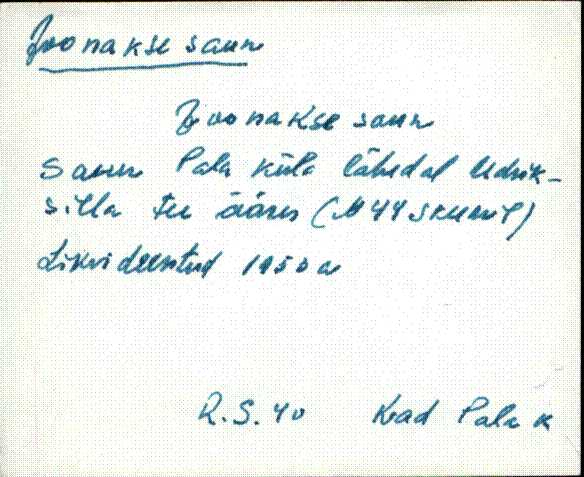 Joonakse saun
Joonakse saun
Saun Pala küla lähedal Udrik-
silla tee ääres (N 44 skeemil)
Likvideeritud 1950 a
R.S. 40 Kad Pala k